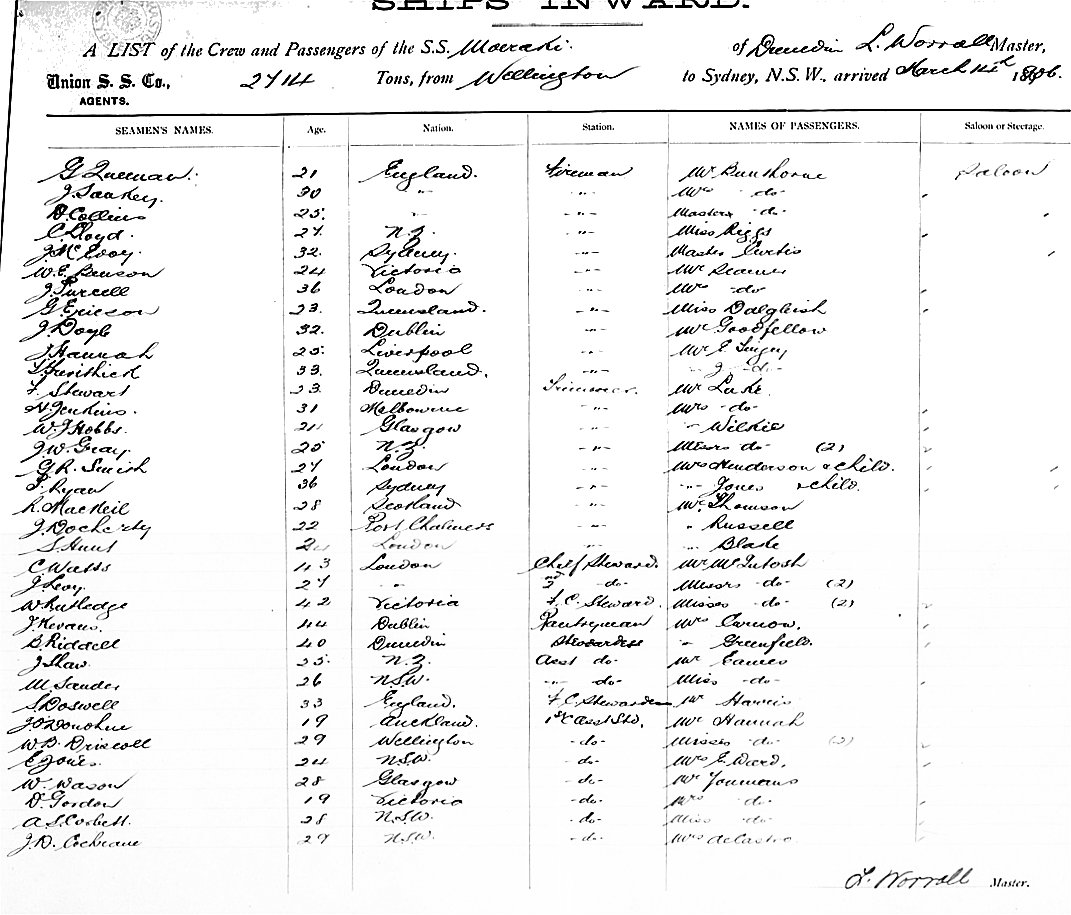 SHIPS INWARD.
A LIST of the Crew and Passengers of the S.S. Moeraki of Dunedin L. Worrall Master,
Union S. S. Co., 2714 Tons, from Wellington to Sydney, N.S.W., arrived March 14th 1906.
AGENTS.
SEAMEN'S NAMES. Age. Nation. Station. NAMES OF PASSENGERS. Saloon or Steerage.
G 21 England. Fireman Mr Bunthorne Saloon
J. 30 " " Mrs do
D. Collins 25 " " Masters do
C Lloyd. 27 N.Z. " Miss Riggs
J. McEvoy. 32. Sydney. " Master Curtis
W. E. 24 Victoria " Mr
J. Purcell 36 London " Mrs do
G. Ericson 23. Queensland. " Miss Dalgleish
J Doyle 32. Dublin " Mr Goodfellow
J. Hannah 25. Liverpool " Mr E.
33. Queensland. " " J. do
F. Stewart 23. Dunedin Trimmer. Mr Lake.
H. Jenkins. 31 Melbourne " Mrs do
W. J Hobbs. 21 Glasgow " " Wilkie
J. W. Gray. 25 N.Z. " Misses do (2)
G. R. Smith 27 London " Mrs Henderson & child.
P. Ryan 36 Sydney " " Jones & child.
R. MacNeil 28 Scotland " Mr Thomson
J. Docherty 22 Port Chalmers " " Russell
S. Hunt London " " Blake
C Watts 43 London Chief Steward. Mr McIntosh
J. Levy. 27 " 2nd do Misses do (2)
W Rutledge 42 Victoria F. C. Steward. Misses do (2)
J Kevans. 44 Dublin Pantryman Mrs Curnow.
B. Riddell 40 Dunedin Stewardess " Greenfield.
J. Shaw. 25. N.Z. Asst do Mr Eames
M. Sander 26 N.S.W. " do Miss do
S. Doswell 33 England. F C Stewardess Mr Harris
J. O'Donohue 19 Auckland. 1st C Asst Std. Mr Hannah
W. B. Driscoll 29 Wellington do Misses do (2)
E Jones. 24 N.S.W. do Mrs E. Ward.
W. Wason 28 Glasgow do Mr Youmans
D. Gordon 19 Victoria do Mrs do
A. S. Corbett. 28 N.S.W. do Miss do
J. D. Cochrane 29 N.S.W. do Mrs deCastro.
L. Worrall Master.